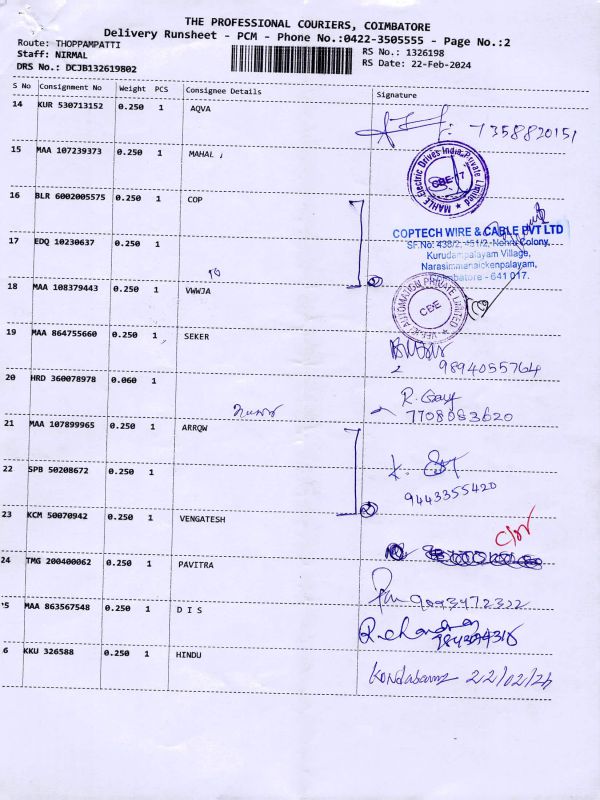 THE PROFESSIONAL COURIERS, COIMBATORE
Delivery Runsheet - PCM - Phone No.:0422-3505555 - Page No.:2
Route: THOPPAMPATTI
Staff: NIRMAL
DRS No.: DCJB132619802
RS No.: 1326198
RS Date: 22-Feb-2024
S No Consignment No Weight PCS Consignee Details Signature
14 KUR 530713152 0.250 1 AQVA
7358820151
15 MAA 107239373 0.250 1 MAHAL ,
MAHLE Electric Drives India Private Limited
CBE-17
16 BLR 6002005575 0.250 1 COP
COPTECH WIRE & CABLE PVT LTD
SF.No: 438/2, 451/2, Nehru Colony,
Kurudampalayam Village,
Narasimmanaickenpalayam,
17 EDQ 10230637 0.250 1
Coimbatore - 641 017.
18 MAA 108379443 0.250 1 VWWJA
AUTOMATION PRIVATE LIMITED
CBE
19 MAA 864755660 0.250 1 SEKER
9894055764
20 HRD 360078978 0.060 1
R.
7708083620
21 MAA 107899965 0.250 1 ARRQW
22 SPB 50208672 0.250 1
K.
9443355420
23 KCM 50070942 0.250 1 VENGATESH
24 TMG 200400062 0.250 1 PAVITRA
25 MAA 863567548 0.250 1 D I S
6 KKU 326588 0.250 1 HINDU
22/02/24